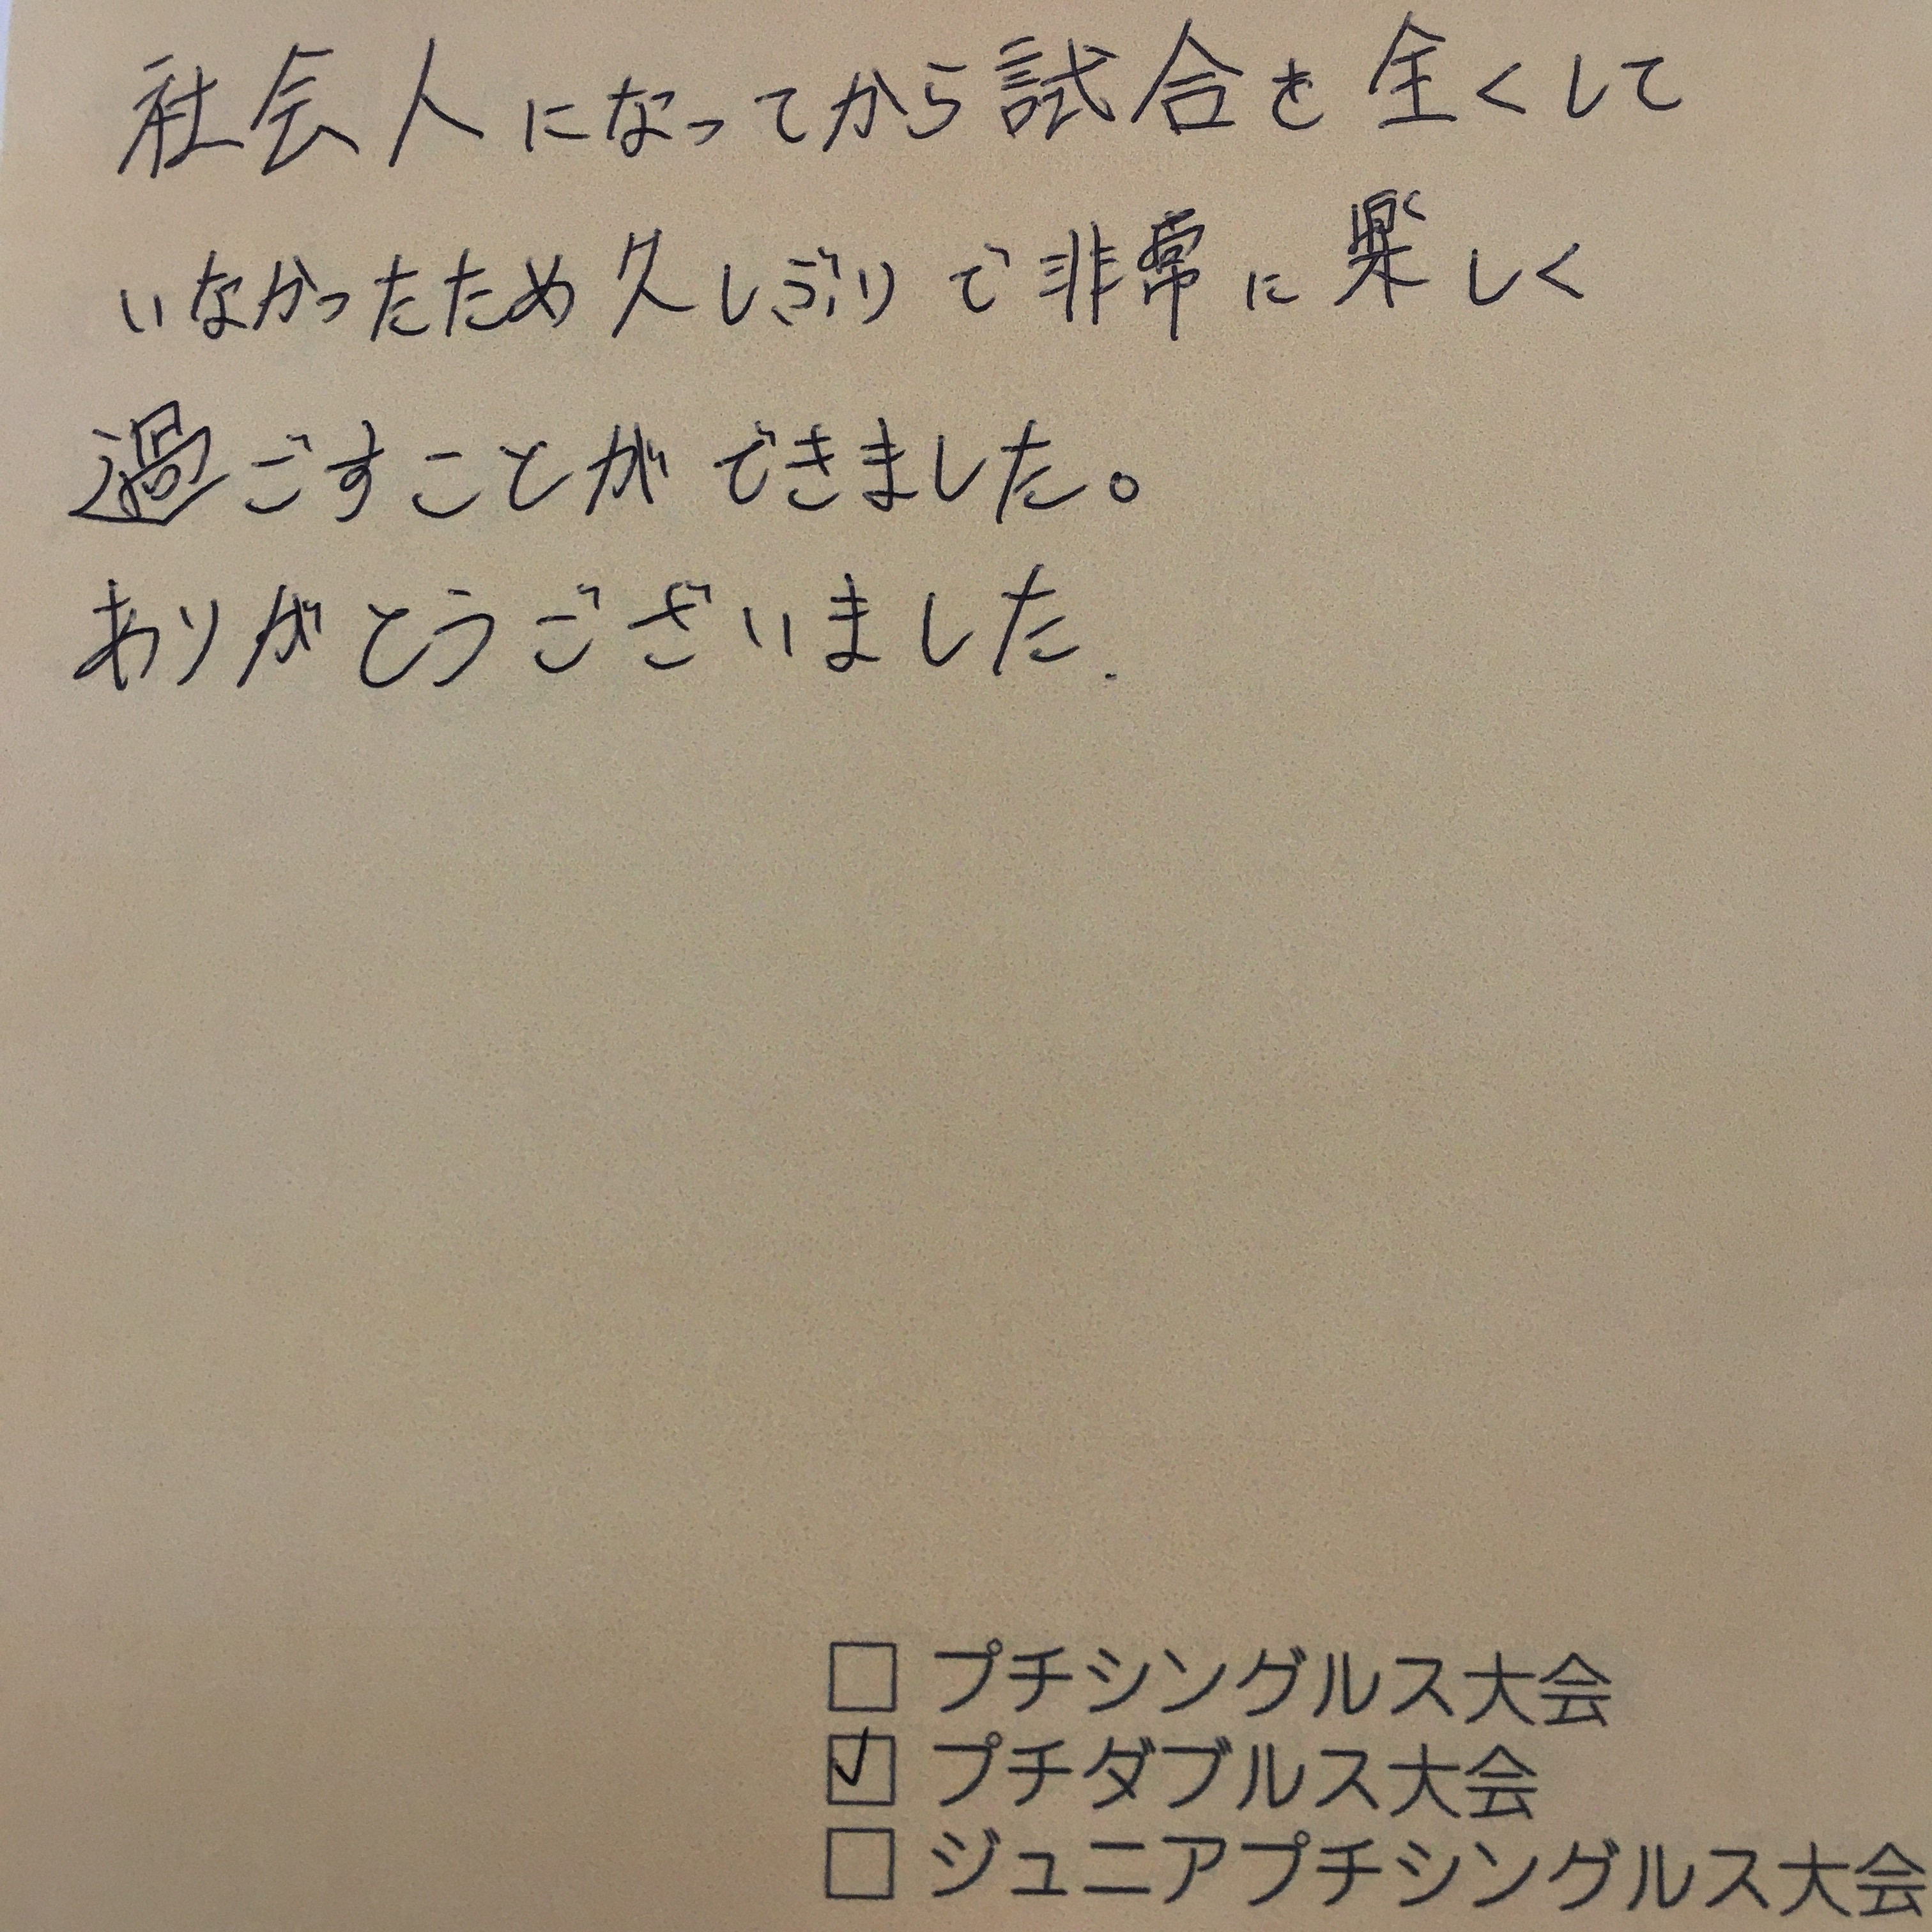 社会人になってから試合を全くして
いなかったため久しぶりで非常に楽しく
過ごすことができました。
ありがとうございました.
□ プチシングルス大会
☑ プチダブルス大会
□ ジュニアプチシングルス大会